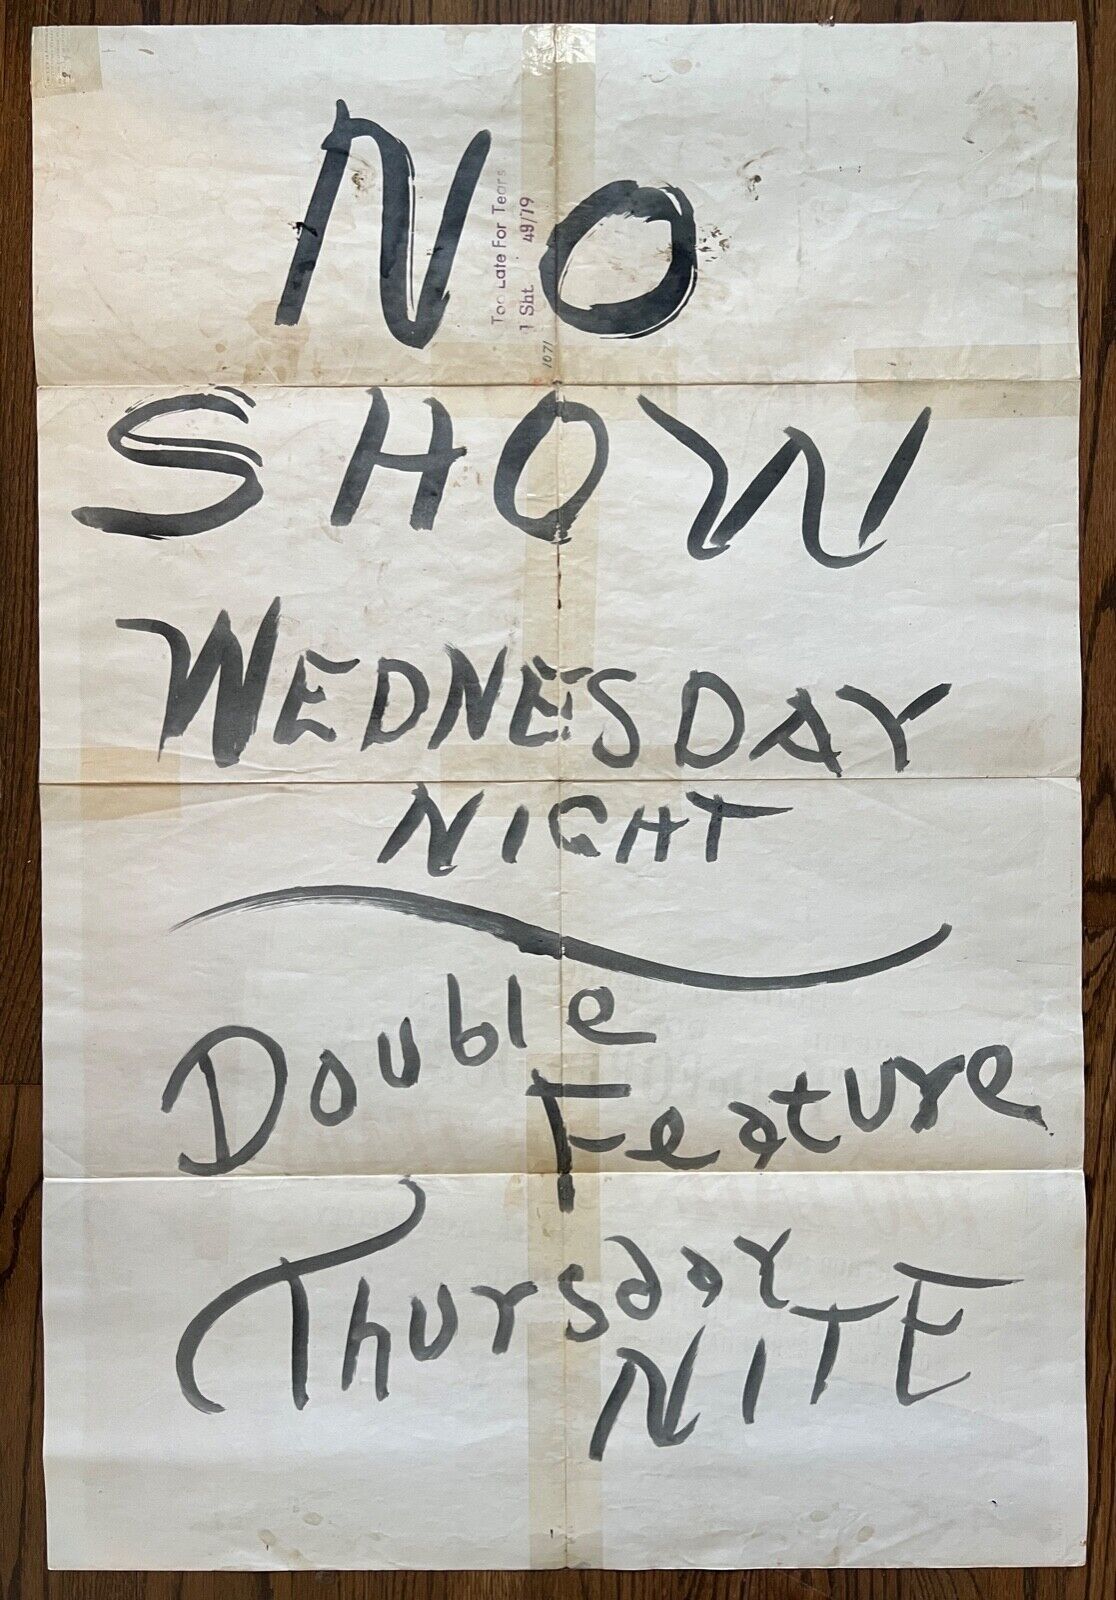 NO
Too Late For Tears
1 Sht. 49/79
1071
SHOW
WEDNESDAY
NIGHT
Double
Feature
Thursday
NITE